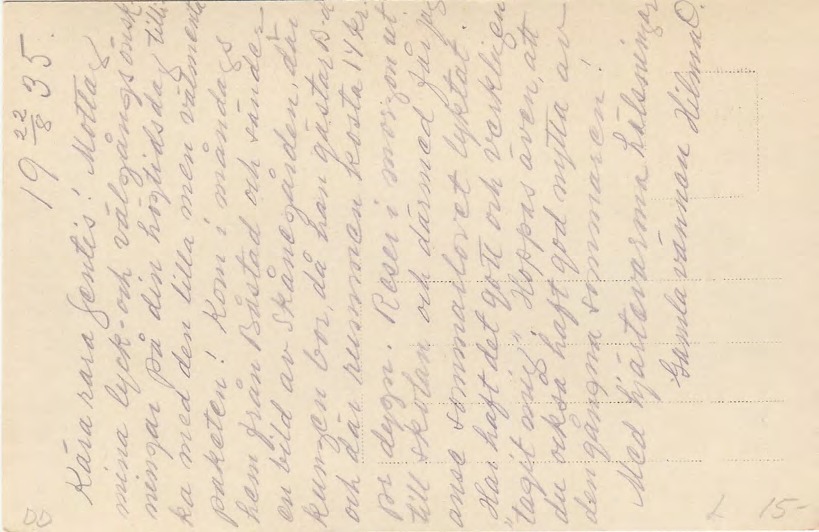 19 22/8 35.
Kära rara Gentis! Mottag
mina lyck- och välgångsönsk
ningar på din högtidsdag till
ka med den lilla men välmenta
paketen! Kom i måndags
hem från Båstad och sänder
en bild av Skånegården, där
kungen bor, då han gästar B-d
och där rummen kosta 14 kr.
pr dygn. Reser i morgon ut
till skolan och därmed får jag
anse sommarlovet lyktat.
Har haft det gott och verkligen
"tagit mig". Hoppas även, att
du också haft god nytta av
den gångna sommaren!
Med hjärtevarma hälsningar
Gamla vännen Hilma O.
DD
L 15-